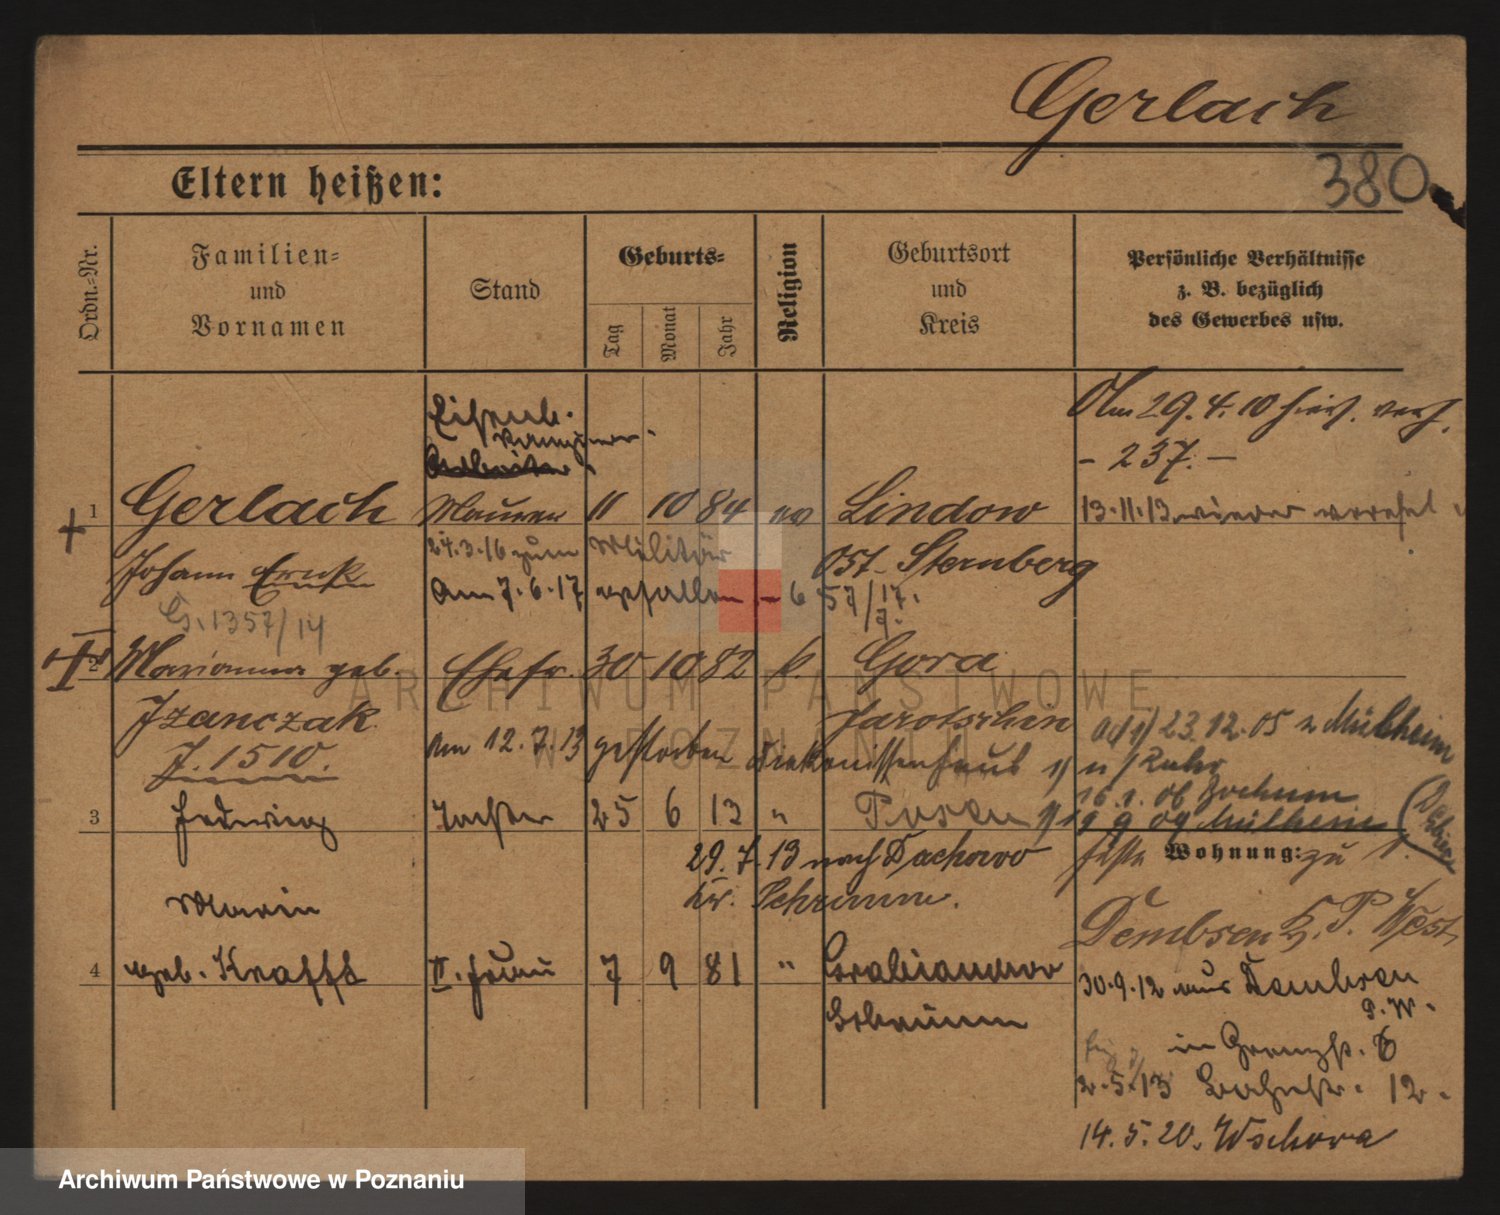 Gerlach
380
Eltern heißen:
Ordn.-Nr.
Familien-
und
Vornamen
Stand
Geburts-
Tag
Monat
Jahr
Religion
Geburtsort
und
Kreis
Persönliche Verhältnisse
z. B. bezüglich
des Gewerbes usw.
Eisenb.
Arbeiter
Am 29.4.10 hies. verh.
- 237. -
1 Gerlach Maurer 11 10 84 ev Lindow
13.11.13 wieder verehel
Johann Ernst 24.3.16 zum Militär Ost-Sternberg
Am 7.6.17 gefallen - 657/17.
G. 1357/14
2 Marianna geb. Ehefr. 30 10 82 k. Gora
Izanczak Jarotschin
J. 1510.
Am 12.7.13 gestorben Diakonissenhaus
ad 1) 23.12.05 n Mülheim
a/Ruhr
16.1.06 Bochum
19 9 09 Mülheim
3 Hedwig Tochter 25 6 13 " Posen
29.7.13 nach Dachowo
Kr. Schrimm.
Wohnung: zu 1.
Maria
Dembsen K. P. West
4 geb. Krafft II. Frau 7 9 81 " Grabianowo
Schrimm
30.9.12 aus Dembsen
P. W.
in Grenzstr. 6
2.5.13 Bahnstr. 12.
14.5.20. Wschowa
ARCHIWUM PAŃSTWOWE
W POZNANIU
Archiwum Państwowe w Poznaniu